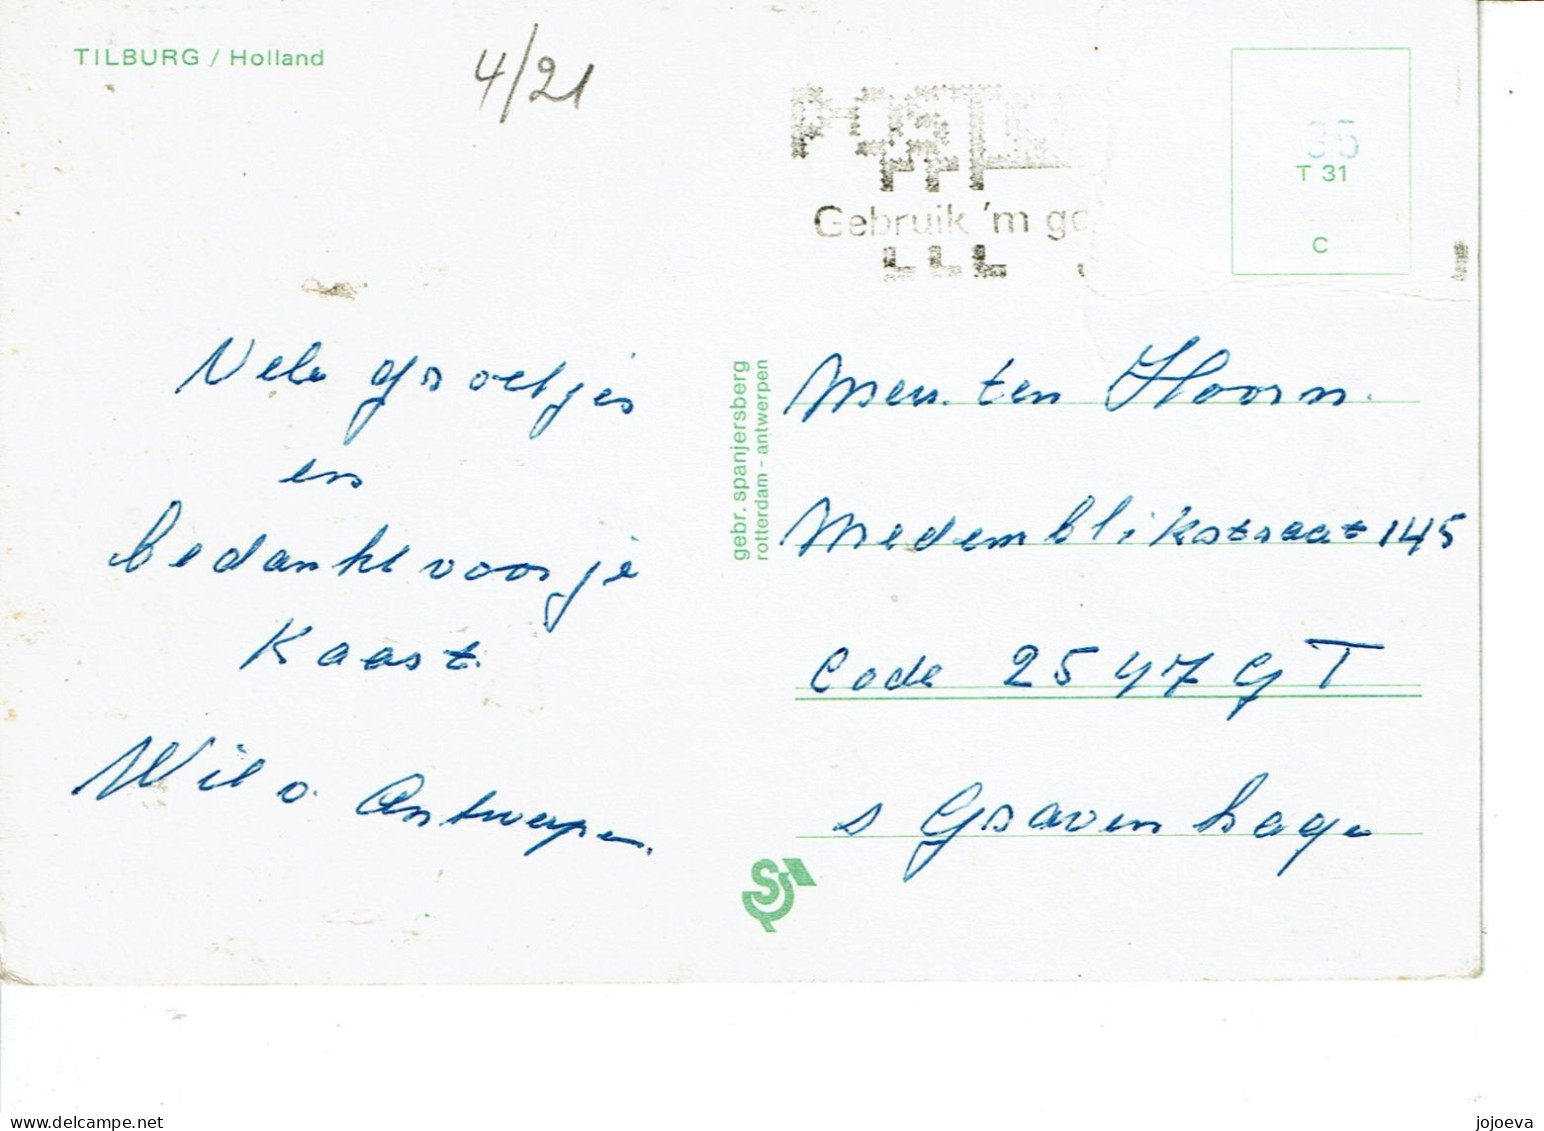 TILBURG / Holland
4/21
POSTCO
Gebruik 'm go
35
T 31
C
Vele groetjes
en
bedankt voor je
Kaart.
Wil v. Antwerpen.
gebr. spanjersberg
rotterdam - antwerpen
Mevr. ten Hoorn.
Medemblikstraat 145
Code 2547 GT
s Gravenhage
delcampe.net
jojoeva